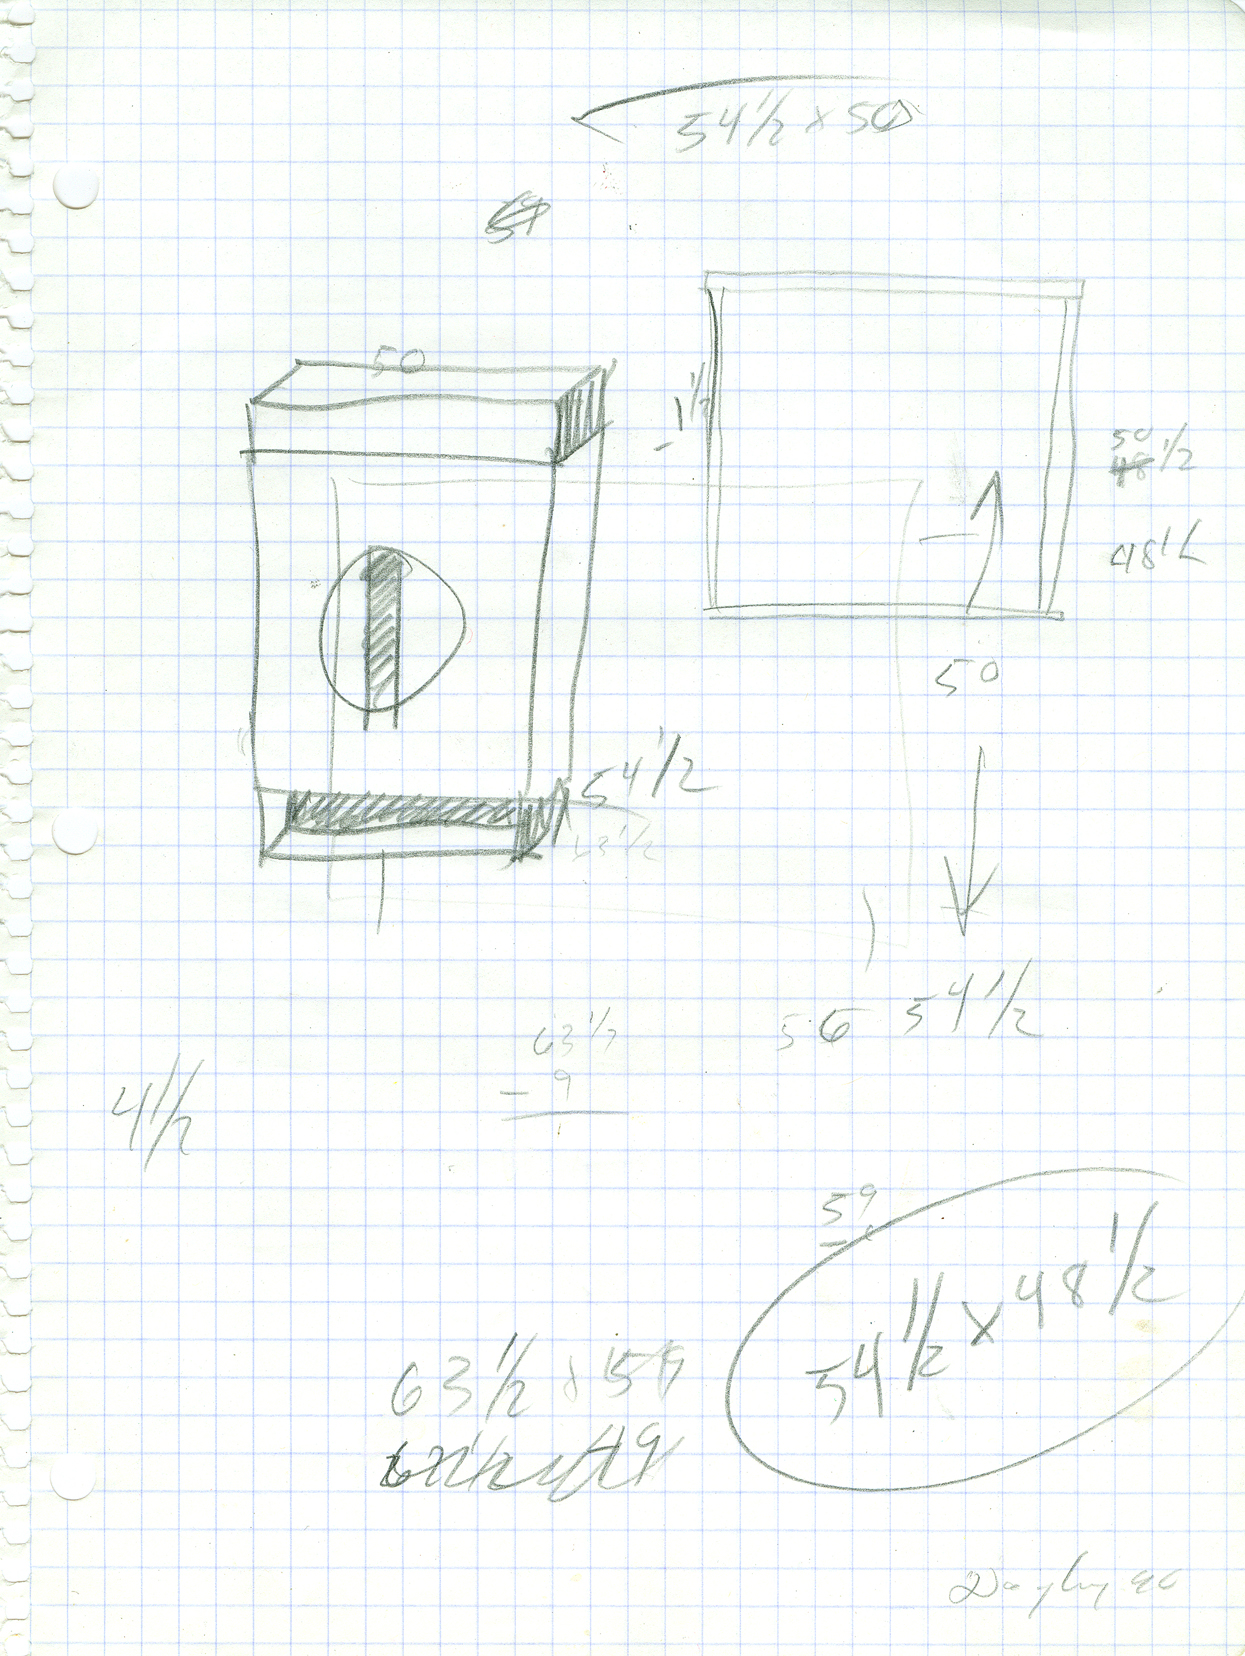 54 1/2 x 50
50
1 1/2
50
48 1/2
48 1/2
50
54 1/2
13 1/2
56 54 1/2
63 1/2
- 9
4 1/2
59
54 1/2 x 48 1/2
63 1/2 x